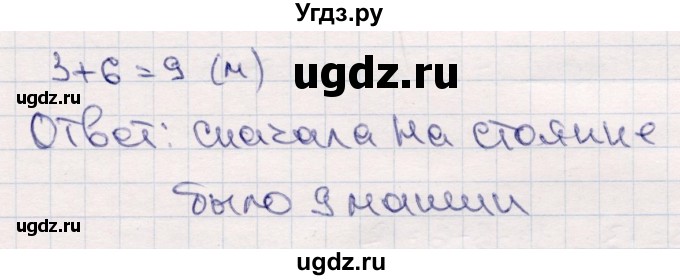 Угдз.ру
3+6=9 (м)
ugdz.ru
ugdz.ru
ugdz.ru
Ответ: сначала на стоянке
было 9 машин
ugdz.ru
ugdz.ru